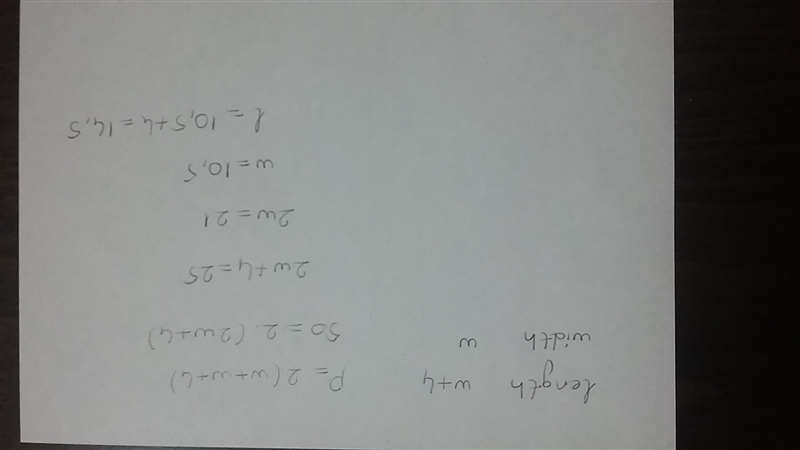 length w+4 P=2(w+w+4)
width w 50=2.(2w+4)
2w+4=25
2w=21
w=10,5
l=10,5+4=14,5